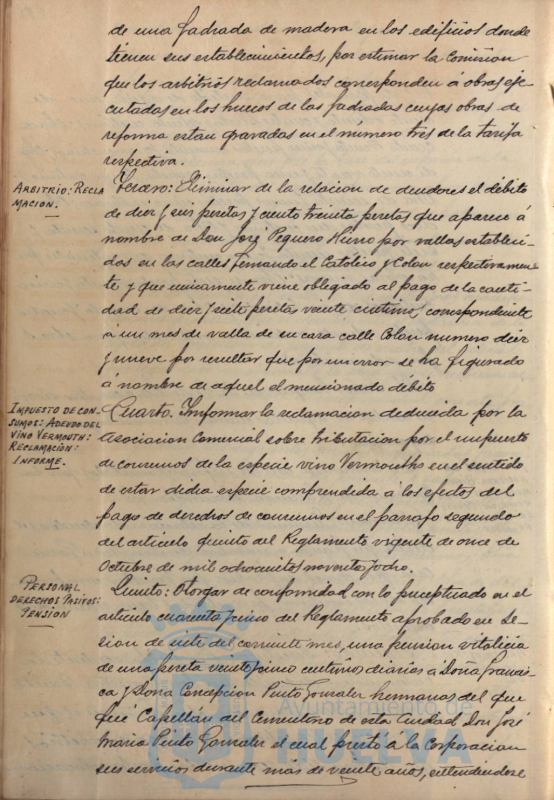 de una fadrada de madera en los edificios donde
tienen sus establecimientos, por estimar la Comision
que los arbitrios reclamados corresponden á obras eje-
cutadas en los huecos de las fadradas cuyas obras de
reforma estan gravadas en el número tres de la tarifa
respectiva.
ARBITRIO: RECLA
MACION.
Tercero: Eliminar de la relacion de deudores el débito
de diez y seis pesetas y ciento treinta pesetas que aparece á
nombre de Don José Peguero Hierro por vallas estableci-
das en las calles Fernando el Catolico y Colon respectivamen-
te y que unicamente viene obligado al pago de la canti-
dad de diez y siete pesetas veinte centimos, correspondiente
á un mes de valla de su casa calle Colon numero diez
y nueve por resultar que por un error se ha figurado
á nombre de aquel el mensionado débito
IMPUESTO DE CON-
SUMOS: ADEUDO DEL
VINO VERMOUTH:
RECLAMACION:
INFORME.
Cuarto. Informar la reclamacion deducida por la
Asociacion Comercial sobre tributacion por el impuesto
de consumos de la especie vino Vermouth en el sentido
de estar dicha especie comprendida á los efectos del
pago de derechos de consumos en el parrafo segundo
del articulo quinto del Reglamento vigente de once de
Octubre de mil ochocientos noventa y ocho.
PERSONAL
DERECHOS PASIVOS:
PENSION
Quinto: Otorgar de conformidad con lo preceptuado en el
articulo cuarenta y cinco del Reglamento aprobado en Se-
sion de siete del corriente mes, una pension vitalicia
de una peseta veinte y cinco centimos diarios á Doña Francis-
ca y Doña Concepcion Pinto Gonzalez hermanas del que
fué Capellán del Cementerio de esta Ciudad Don José
Maria Pinto Gonzalez el cual prestó á la Corporacion
sus servicios durante más de veinte años, entendiendose
Ayuntamiento de
HUELVA